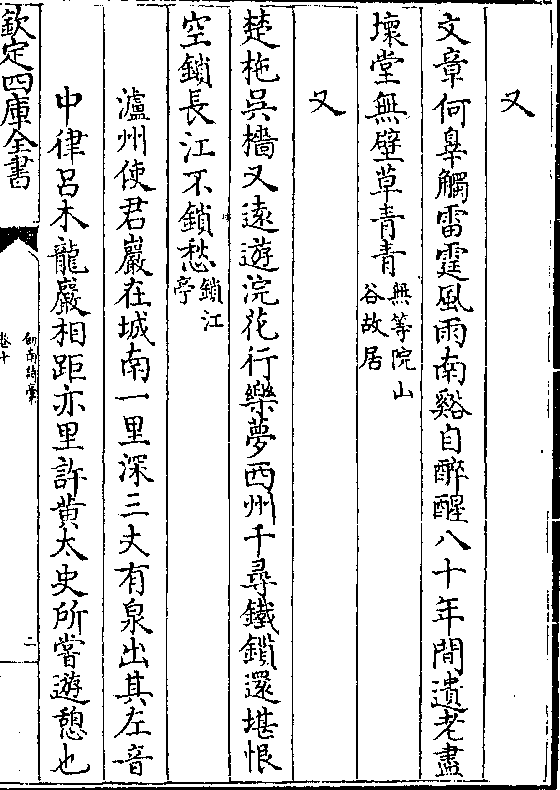 又
文章何辠觸雷霆風雨南谿自醉醒八十年間遺老盡
壞堂無壁草青青無等院山
谷故居
又
楚柂吳檣又遠遊浣花行樂夢西州千尋鐵鎖還堪恨
空鎖長江不鎖愁鎖江
亭
瀘州使君巖在城南一里深三丈有泉出其左音
中律呂木龍巖相距亦里許黄太史所嘗遊憩也
欽定四庫全書
劍南詩稾
卷十
二